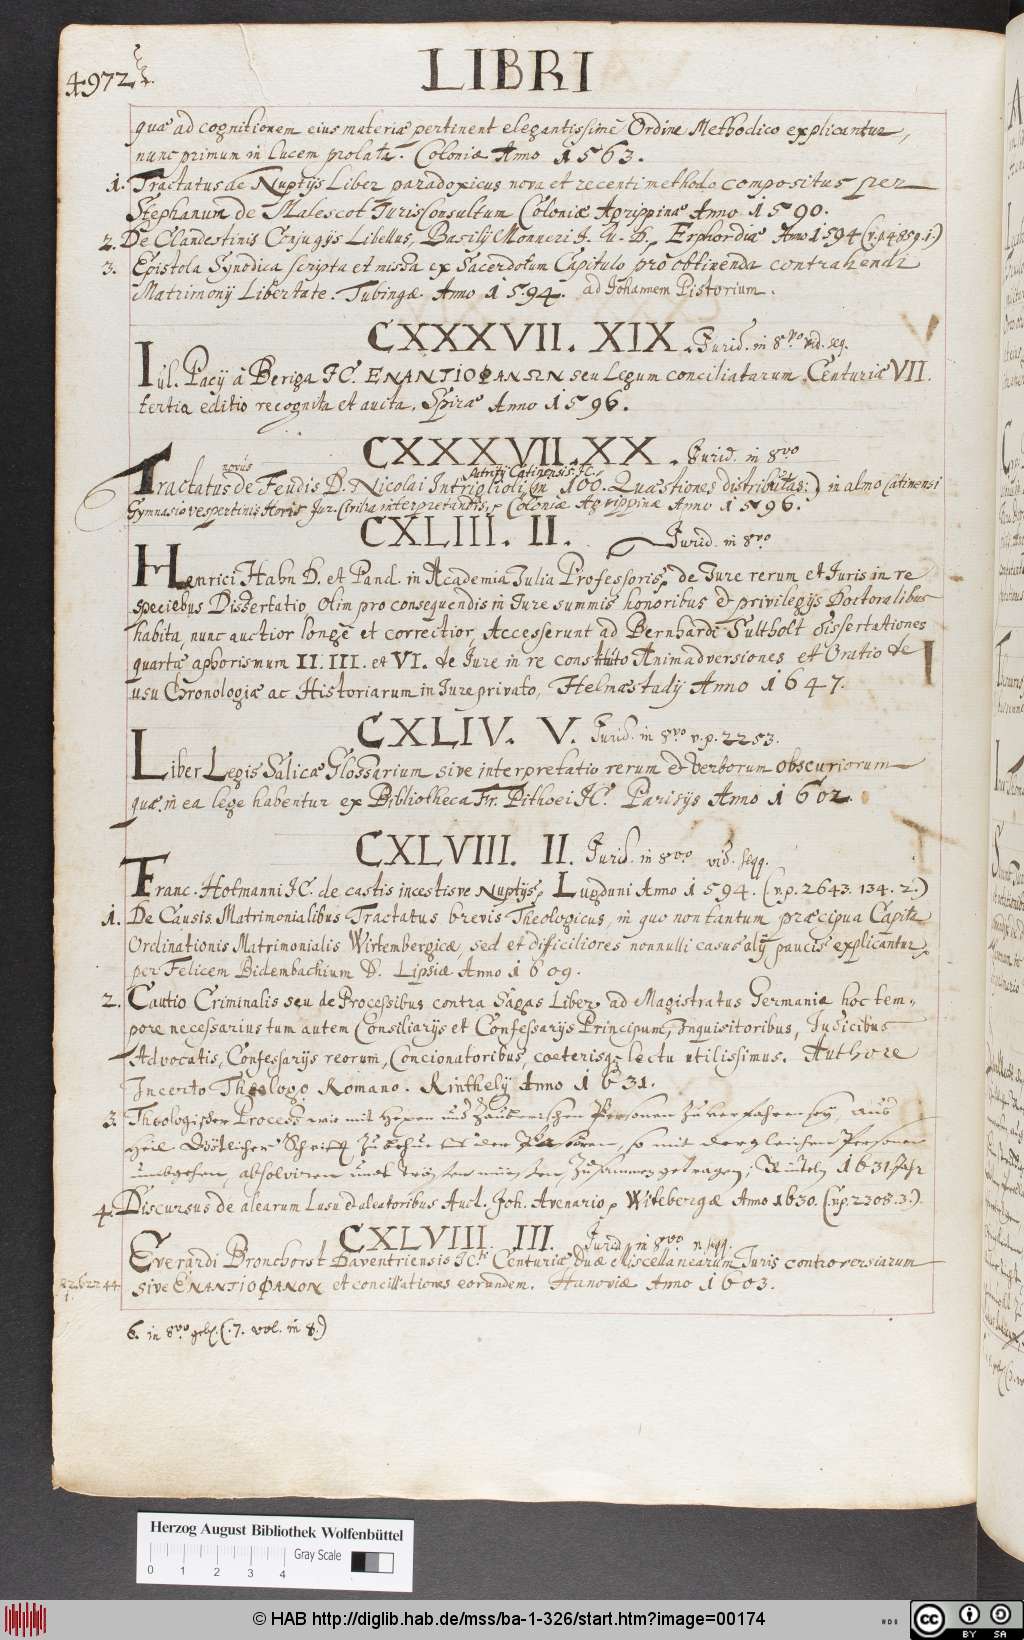 4972
LIBRI
quæ ad cognitionem eius materiæ pertinent elegantissimè Ordine Methodico explicantur,
nunc primum in lucem prolata. Coloniæ Anno 1563.
1. Tractatus de Nuptijs Liber paradoxicus nova et recenti methodo compositus per
Stephanum de Malescot Jurisconsultum Coloniæ Agrippinæ Anno 1590.
2. De Clandestinis Conjugijs Libellus, Basilij Monneri J. U. D. Erphordiæ Anno 1594 (v.p. 4859.1.)
3. Epistola Synodica scripta et missa ex Sacerdotum Capitulo pro obtinenda contrahendi
Matrimonij Libertate. Tubingæ Anno 1594. ad Johannem Pistorium.
CXXXVII. XIX. Jurid. in 8vo vid. seq.
Iul. Pacij à Beriga JC. ENANTIOΦANΩN seu Legum conciliatarum Centuriæ VII.
tertia editio recognita et aucta. Spiræ Anno 1596.
CXXXVII. XX. Jurid. in 8vo
Tractatus novus de Feudis D. Nicolai Intriglioli Patritij Catinensis JC. in 100. Quæstiones distributus: in almo Catinensi
Gymnasio vespertinis Horis Jur. Civilia interpretandis, Coloniæ Agrippinæ Anno 1596.
CXLIII. II. Jurid. in 8vo
Henrici Hahn D. et Pand. in Academia Julia Professoris, de Jure rerum et Juris in re
speciebus Dissertatio olim pro consequendis in Jure summis honoribus & privilegijs Doctoralibus
habita, nunc auctior longè et correctior, Accesserunt ad Bernhardi Sultholt dissertationes
quartæ aphorismum II. III. et VI. de Jure in re constituto Animadversiones et Oratio de
usu Chronologiæ ac Historiarum in Jure privato, Helmæstadij Anno 1647.
CXLIV. V. Jurid. in 8vo v.p. 2253.
Liber Legis Salicæ Glossarium sive interpretatio rerum & verborum obscuriorum
quæ in ea lege habentur ex Bibliotheca Fr. Pithoei JC. Parisijs Anno 1602.
CXLVIII. II. Jurid. in 8vo vid. seqq.
Franc. Hotmanni JC. de castis incestisve Nuptijs, Lugduni Anno 1594. (v.p. 2643. 134. 2.)
1. De Causis Matrimonialibus Tractatus brevis Theologicus, in quo non tantum præcipua Capita
Ordinationis Matrimonialis Wirtembergicæ, sed et dificiliores nonnulli casus alij paucis explicantur,
per Felicem Bidembachium D. Lipsiæ Anno 1609.
2. Cautio Criminalis seu de Processibus contra Sagas Liber, ad Magistratus Germaniæ hoc tem„
pore necessarius tum autem Consiliarijs et Confessarijs Principum, Inquisitoribus, Judicibus
Advocatis, Confessarijs reorum, Concionatoribus, cæterisq; lectu utilissimus. Authore
Incerto Theologo Romano. Rinthelij Anno 1631.
3. Theologischer Process wie mit Hexen und Zauberischen Personen zu verfahren sey, aus
Heil. Göttlicher Schrifft so mit dergleichen Personen
umbgehen, absolviren undt trösten müssen, zusammen getragen; Rinteln 1631 Jahr
4. Discursus de alearum Lusu & aleatoribus Auct. Joh. Avenario, Witebergæ Anno 1630. (v.p. 2308. 3.)
CXLVIII. III. Jurid. in 8vo v. seqq.
Everardi Bronchorst Daventriensis JCti Centuriæ duæ Miscellanearum Juris controversiarum
sive ENANTIOΦANON et conciliationes eorundem. Hanoviæ Anno 1603.
6. in 8vo (.7. vol. in 8.)
Herzog August Bibliothek Wolfenbüttel
Gray Scale
0 1 2 3 4
© HAB http://diglib.hab.de/mss/ba-1-326/start.htm?image=00174
cc BY SA